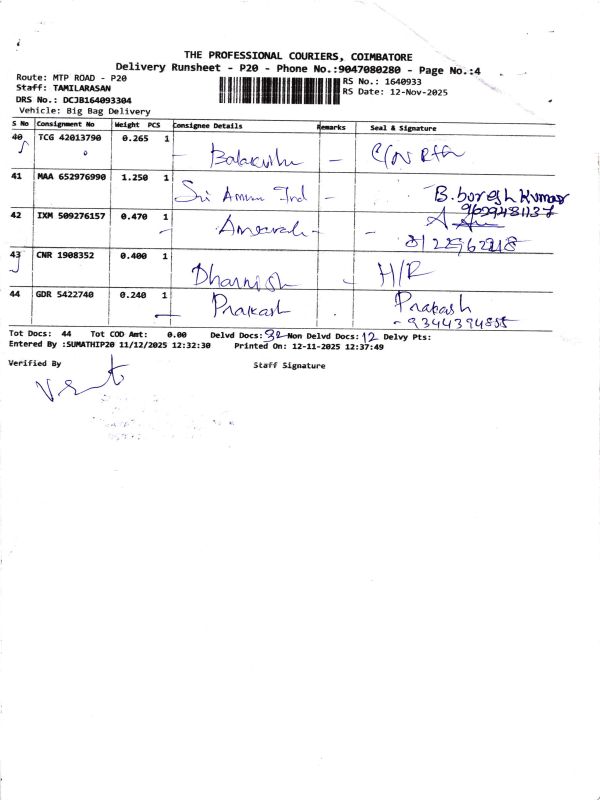 THE PROFESSIONAL COURIERS, COIMBATORE
Delivery Runsheet - P20 - Phone No.:9047080280 - Page No.:4
Route: MTP ROAD - P20 RS No.: 1640933
Staff: TAMILARASAN RS Date: 12-Nov-2025
DRS No.: DCJB164093304
Vehicle: Big Bag Delivery
S No Consignment No Weight PCS Consignee Details Remarks Seal & Signature
40 TCG 42013790 0.265 1
41 MAA 652976990 1.250 1 Sri Ind B. Kumar
9629481137
42 IXM 509276157 0.470 1
43 CNR 1908352 0.400 1 Dharnish H/R
44 GDR 5422740 0.240 1 Prakash Prakash
Tot Docs: 44 Tot COD Amt: 0.00 Delvd Docs: 32 Non Delvd Docs: 12 Delvy Pts:
Entered By :SUMATHIP20 11/12/2025 12:32:30 Printed On: 12-11-2025 12:37:49
Verified By Staff Signature